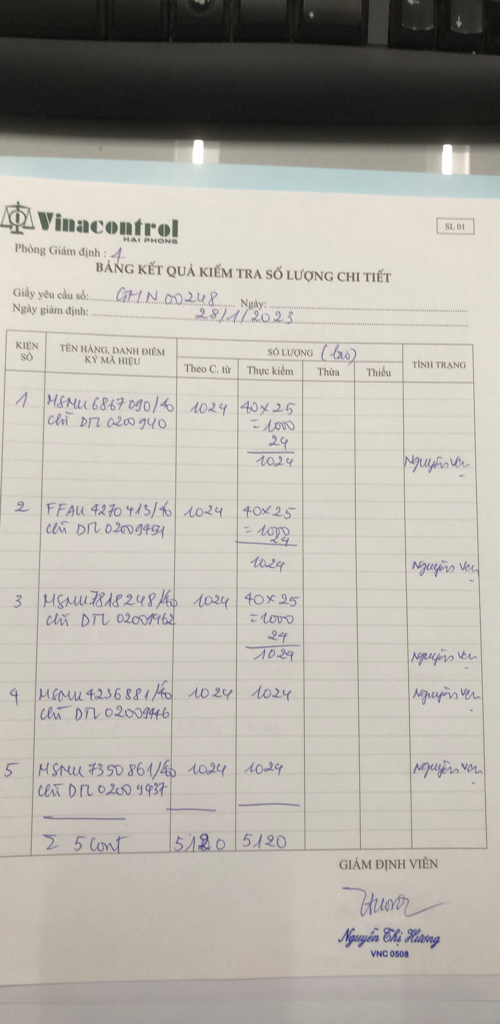 Vinacontrol
HAI PHONG
SL 01
Phòng Giám định : 1
BẢNG KẾT QUẢ KIỂM TRA SỐ LƯỢNG CHI TIẾT
Giấy yêu cầu số: GHN 00248 Ngày:
Ngày giám định: 28/1/2023
KIỆN SỐ TÊN HÀNG, DANH ĐIỂM KÝ MÃ HIỆU SỐ LƯỢNG (bao) TÌNH TRẠNG
Theo C. từ Thực kiểm Thừa Thiếu
1 MSMU 6867090/40 1024 40 x 25
chì DTL 0200940 = 1000
24
1024 Nguyên vẹn
2 FFAU 4270413/40 1024 40 x 25
chì = 1000
24
1024 Nguyên vẹn
3 MSMU 7818248/40 1024 40 x 25
chì DTL 02009462 = 1000
24
1024 Nguyên vẹn
4 MSMU 4236881/40 1024 1024 Nguyên vẹn
chì DTL 02009446
5 MSMU 7350861/40 1024 1024 Nguyên vẹn
chì DTL 02009437
Σ 5 cont 5120 5120
GIÁM ĐỊNH VIÊN
Nguyễn Thị Hương
VNC 0508